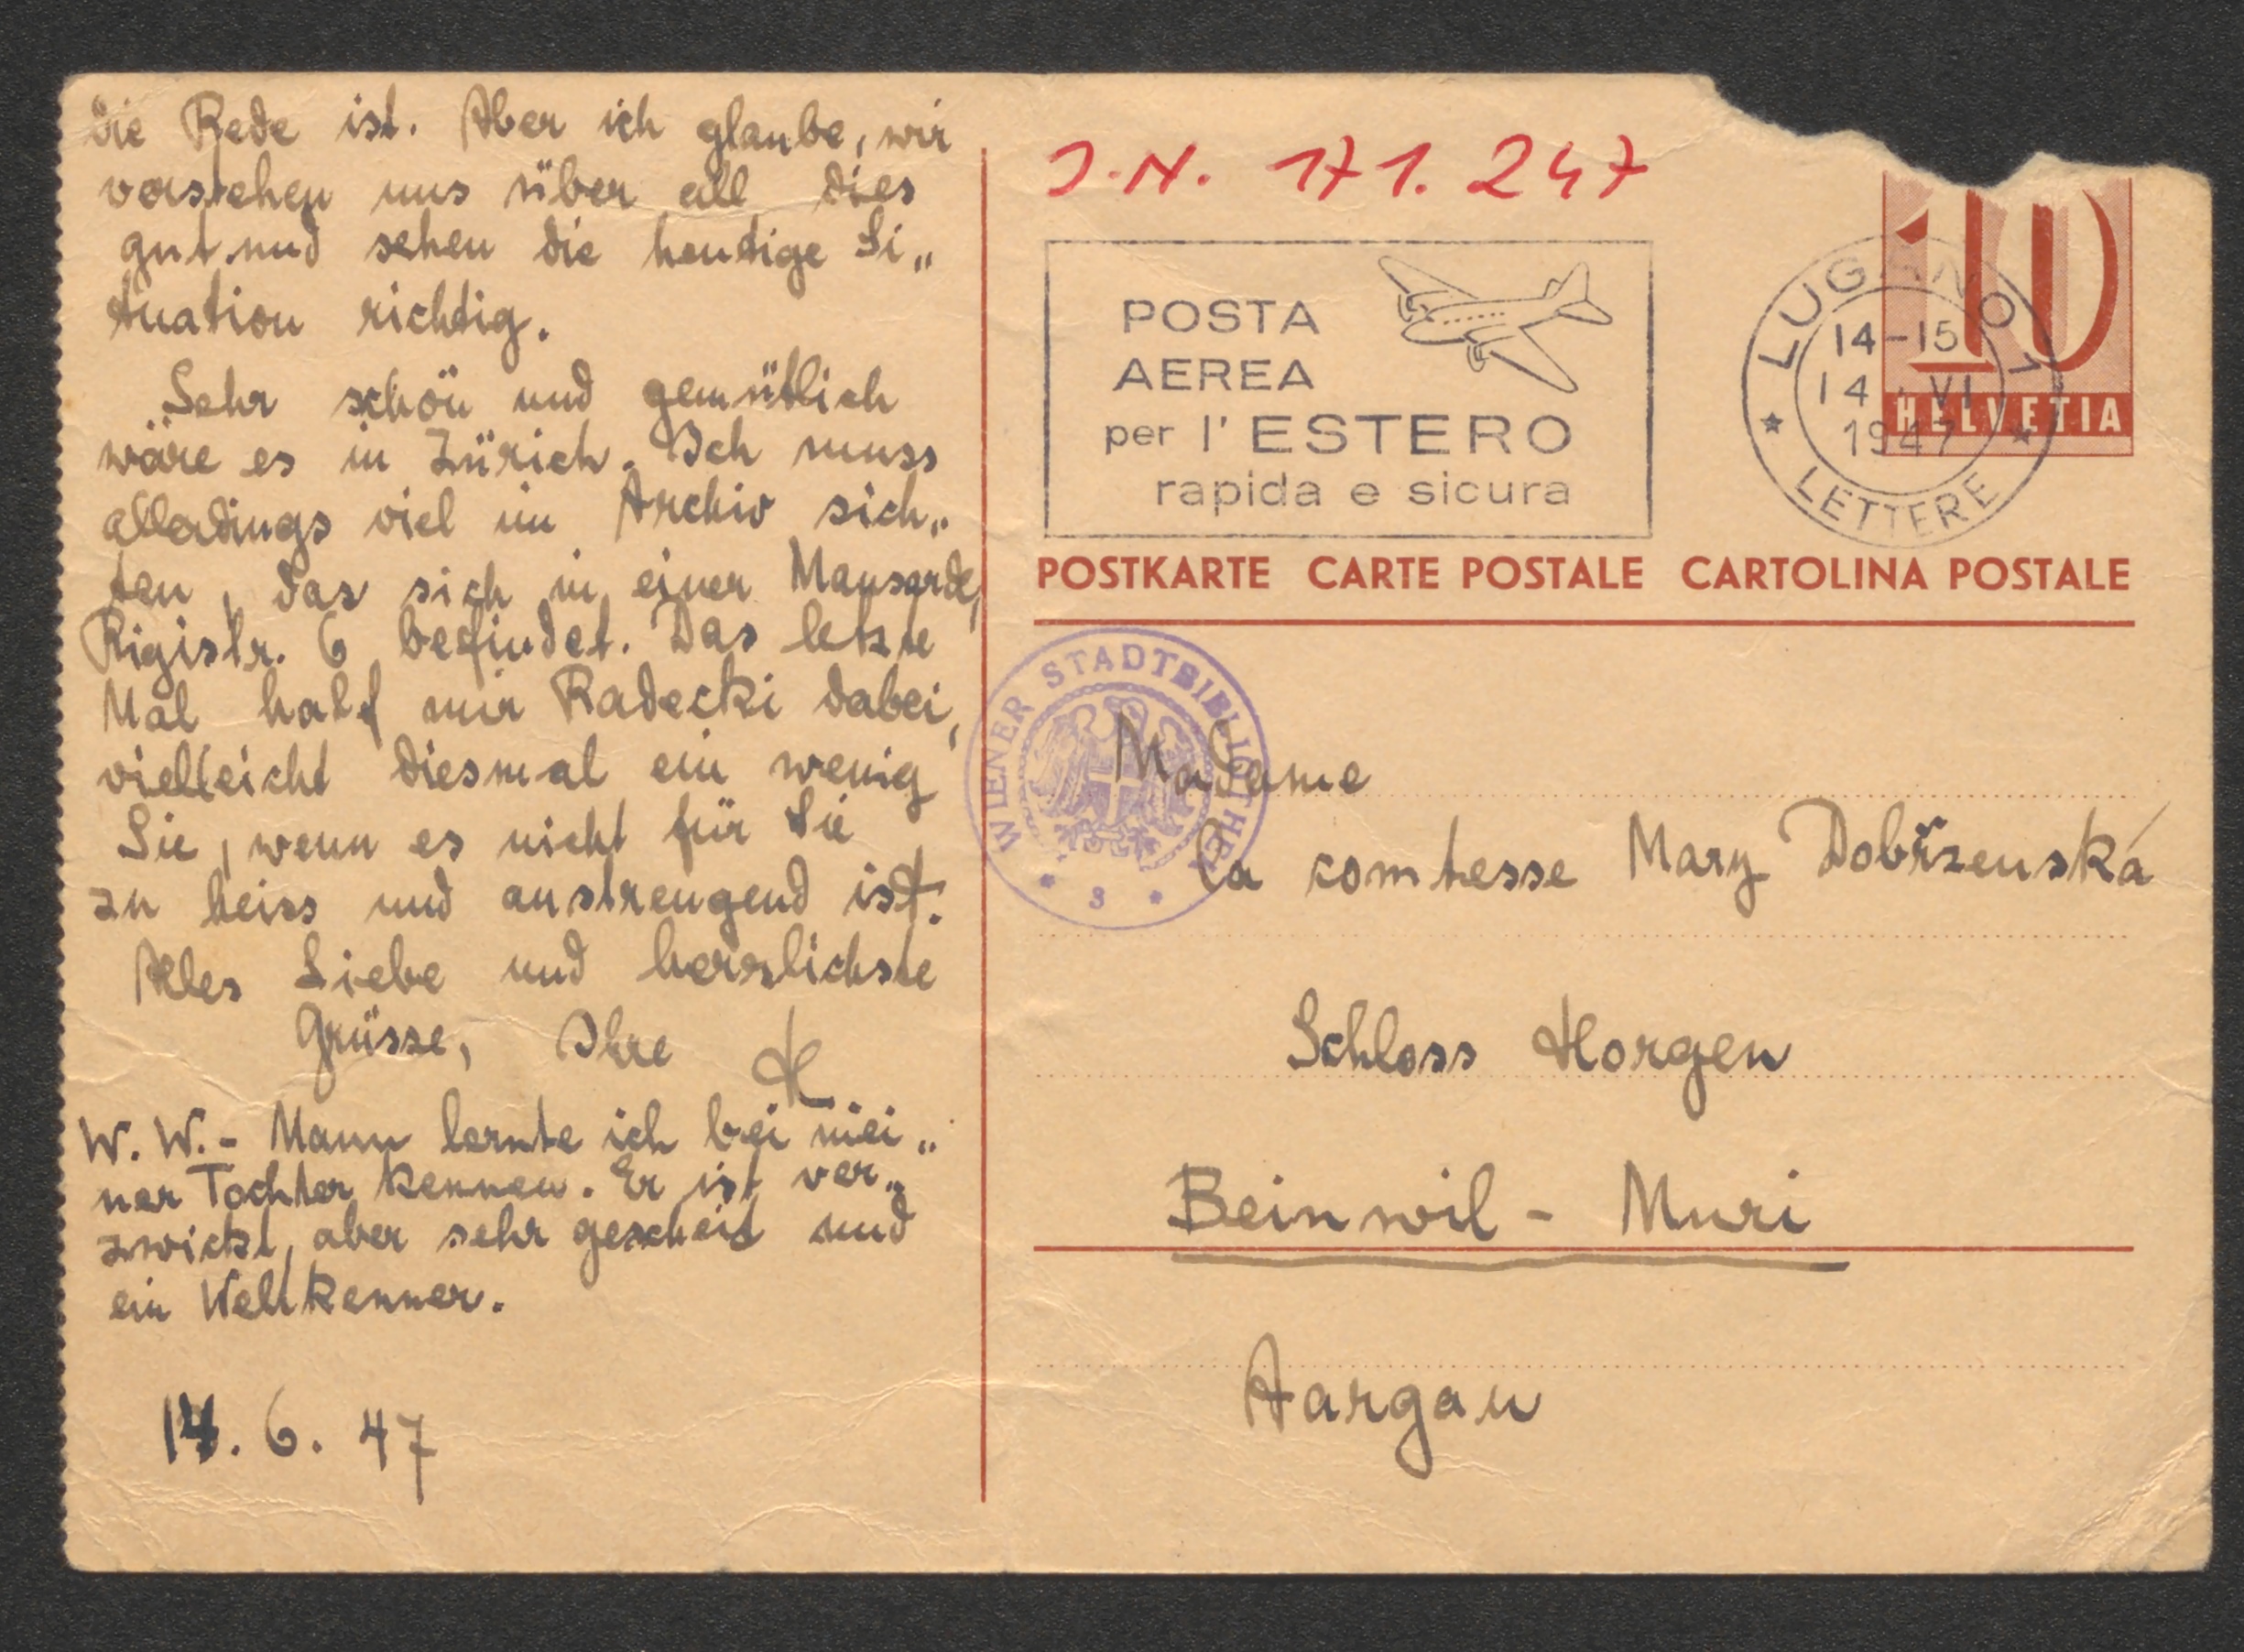 die Rede ist. Aber ich glaube, wir
verstehen uns über all dies
gut und sehen die heutige Si„
tuation richtig.
Sehr schön und gemütlich
wäre es in Zürich. Ich muss
allerdings viel im Archiv sich„
ten, das sich in einer Mansarde,
Rigistr. 6 befindet. Das letzte
Mal half mir Radecki dabei,
vielleicht diesmal ein wenig
Sie, wenn es nicht für Sie
zu heiss und anstrengend ist.
Alles Liebe und herzlichste
Grüsse, Ihre
H
W. W.- Mann lernte ich bei mei„
ner Tochter kennen. Er ist ver„
zwickt, aber sehr gescheit und
ein Weltkenner.
14. 6. 47
J.N. 171.247
POSTA
AEREA
per l'ESTERO
rapida e sicura
LUGANO 1
14-15
14.VI
1947
LETTERE
10
HELVETIA
POSTKARTE CARTE POSTALE CARTOLINA POSTALE
WIENER STADTBIBLIOTHEK
* 3 *
Madame
la comtesse Mary Dobřzenská
Schloss Horgen
Beinwil - Muri
Aargau